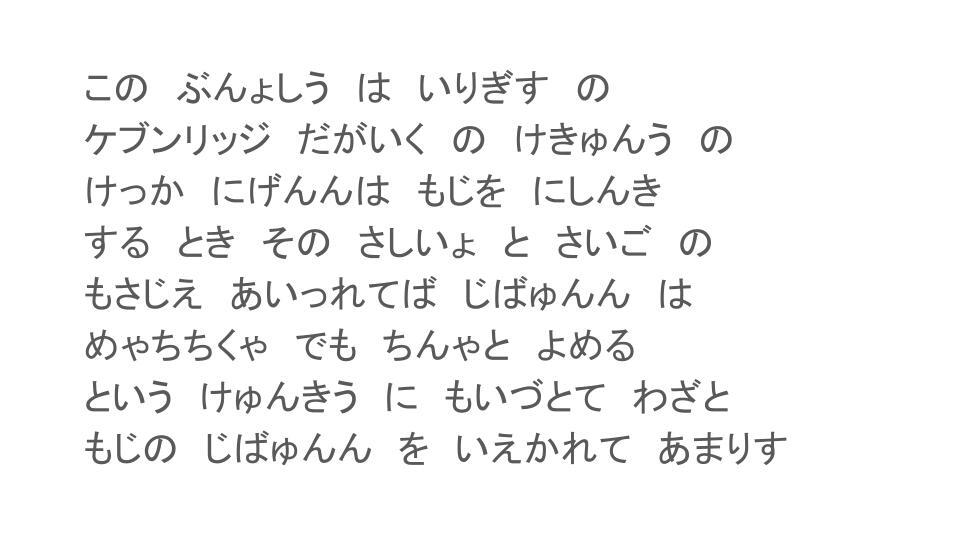 この ぶんょしう は いりぎす の
ケブンリッジ だがいく の けきゅんう の
けっか にげんんは もじを にしんき
する とき その さしいょ と さいご の
もさじえ あいっれてば じばゅんん は
めゃちちくゃ でも ちんゃと よめる
という けゅんきう に もいづとて わざと
もじの じばゅんん を いえかれて あまりす